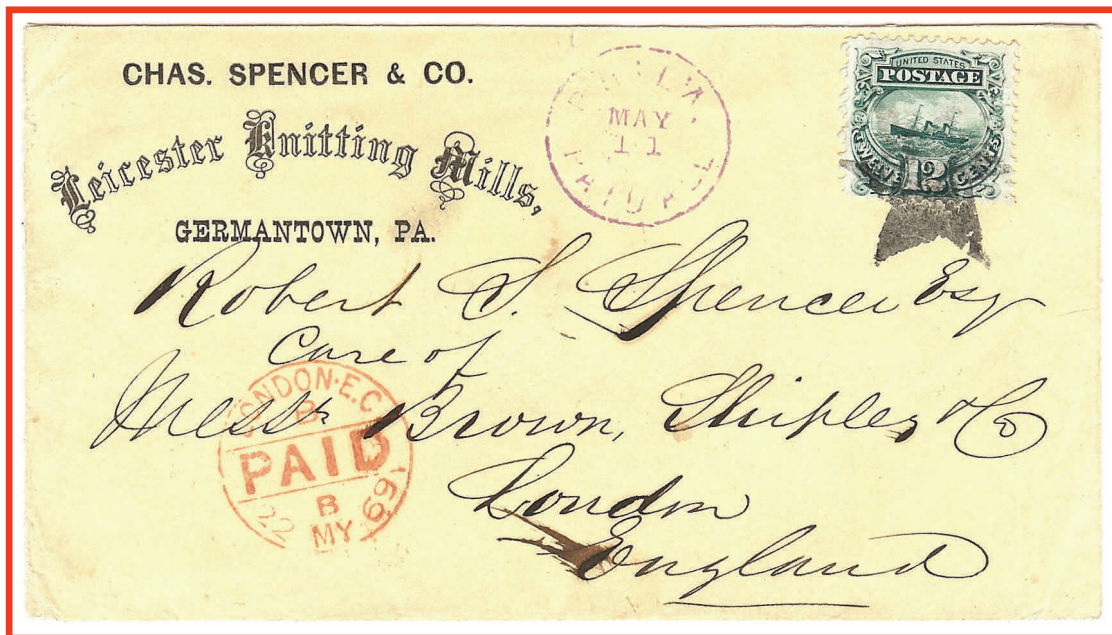 CHAS. SPENCER & CO.
Leicester Knitting Mills,
GERMANTOWN, PA.
PHILA.
MAY
11
PAID ALL
UNITED STATES
POSTAGE
TWELVE 12 CENTS
Robert S. Spencer Esq
Care of
Messrs Brown, Shipley & Co
London
England
LONDON·E.C
B
PAID
B
22 MY 69